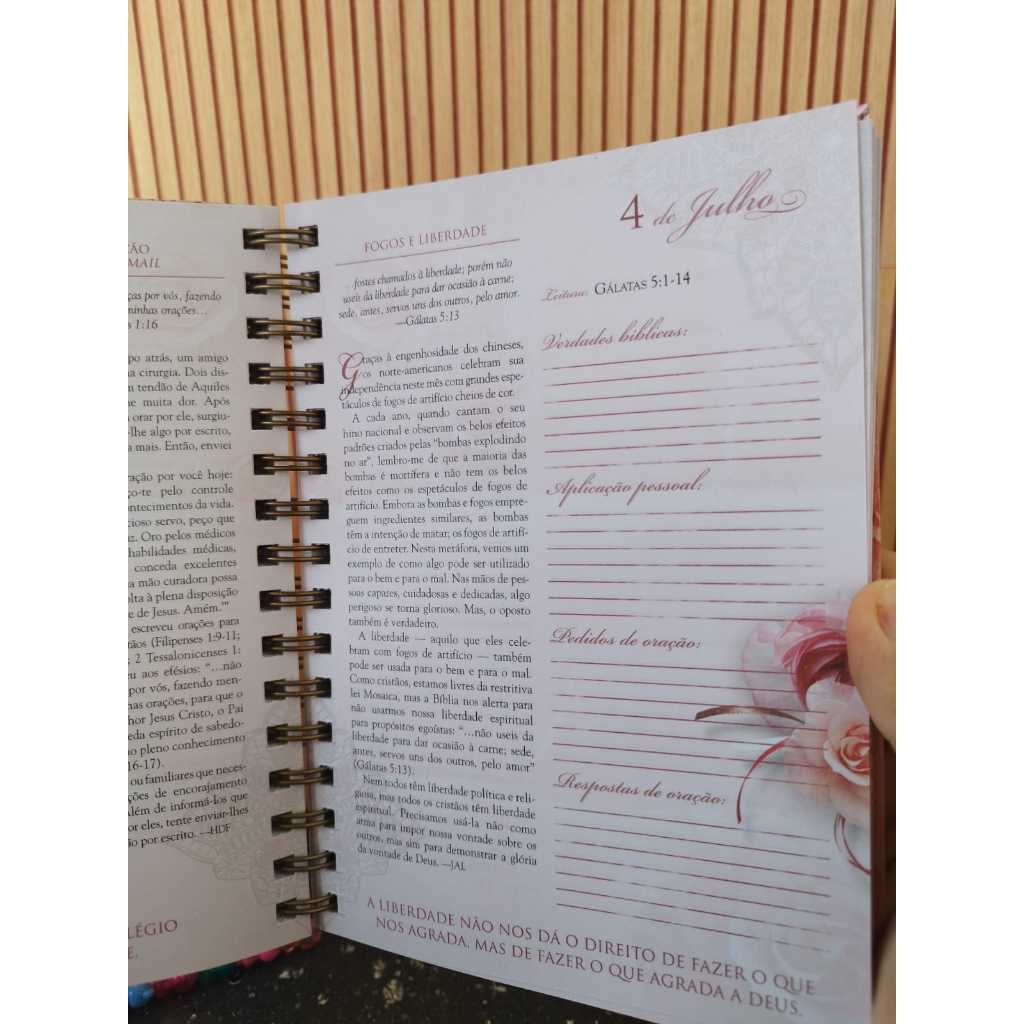 ÃO
MAIL
ças por vós, fazendo
minhas orações…
1:16
po atrás, um amigo
a cirurgia. Dois dis-
m tendão de Aquiles
e muita dor. Após
orar por ele, surgiu-
-lhe algo por escrito,
a mais. Então, enviei
ração por você hoje:
ço-te pelo controle
ontecimentos da vida.
cioso servo, peço que
az. Oro pelos médicos
habilidades médicas,
conceda excelentes
a mão curadora possa
olta à plena disposição
e de Jesus. Amém.’”
escreveu orações para
nãos (Filipenses 1:9-11;
; 2 Tessalonicenses 1:
eu aos efésios: “…não
por vós, fazendo men-
nas orações, para que o
hor Jesus Cristo, o Pai
eda espírito de sabedo-
no pleno conhecimento
16-17).
ou familiares que neces-
ções de encorajamento
Além de informá-los que
or eles, tente enviar-lhes
ão por escrito. —HDF
LÉGIO
E.
FOGOS E LIBERDADE
…fostes chamados à liberdade; porém não
useis da liberdade para dar ocasião à carne;
sede, antes, servos uns dos outros, pelo amor.
—Gálatas 5:13
Graças à engenhosidade dos chineses,
os norte-americanos celebram sua
independência neste mês com grandes espe-
táculos de fogos de artifício cheios de cor.
A cada ano, quando cantam o seu
hino nacional e observam os belos efeitos
padrões criados pelas “bombas explodindo
no ar”, lembro-me de que a maioria das
bombas é mortífera e não tem os belos
efeitos como os espetáculos de fogos de
artifício. Embora as bombas e fogos empre-
guem ingredientes similares, as bombas
têm a intenção de matar; os fogos de artifí-
cio de entreter. Nesta metáfora, vemos um
exemplo de como algo pode ser utilizado
para o bem e para o mal. Nas mãos de pes-
soas capazes, cuidadosas e dedicadas, algo
perigoso se torna glorioso. Mas, o oposto
também é verdadeiro.
A liberdade — aquilo que eles cele-
bram com fogos de artifício — também
pode ser usada para o bem e para o mal.
Como cristãos, estamos livres da restritiva
lei Mosaica, mas a Bíblia nos alerta para
não usarmos nossa liberdade espiritual
para propósitos egoístas: “…não useis da
liberdade para dar ocasião à carne; sede,
antes, servos uns dos outros, pelo amor”
(Gálatas 5:13).
Nem todos têm liberdade política e reli-
giosa, mas todos os cristãos têm liberdade
espiritual. Precisamos usá-la não como
arma para impor nossa vontade sobre os
outros, mas sim para demonstrar a glória
da vontade de Deus. —JAL
4 de Julho
Leitura: GÁLATAS 5:1-14
Verdades bíblicas:
Aplicação pessoal:
Pedidos de oração:
Respostas de oração:
A LIBERDADE NÃO NOS DÁ O DIREITO DE FAZER O QUE
NOS AGRADA, MAS DE FAZER O QUE AGRADA A DEUS.